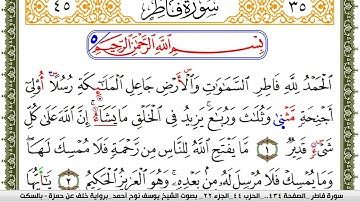 ٤٥ سُورَةُ فَاطِرٍ ٣٥
٥ بِسْمِ اللَّهِ الرَّحْمَٰنِ الرَّحِيمِ
الْحَمْدُ لِلَّهِ فَاطِرِ السَّمَٰوَٰتِ وَالْأَرْضِ جَاعِلِ الْمَلَٰٓئِكَةِ رُسُلًا أُو۟لِىٓ
أَجْنِحَةٍ مَّثْنَىٰ وَثُلَٰثَ وَرُبَٰعَ يَزِيدُ فِى الْخَلْقِ مَا يَشَآءُ إِنَّ اللَّهَ عَلَىٰ كُلِّ
شَىْءٍ قَدِيرٌ ١ مَّا يَفْتَحِ اللَّهُ لِلنَّاسِ مِن رَّحْمَةٍ فَلَا مُمْسِكَ لَهَا
وَمَا يُمْسِكْ فَلَا مُرْسِلَ لَهُۥ مِنۢ بَعْدِهِۦ وَهُوَ الْعَزِيزُ الْحَكِيمُ ٢ يَٰٓأَيُّهَا
سورة فاطر. الصفحة ٤٣٤. الحزب ٤٤. الجزء ٢٢. بصوت الشيخ يوسف نوح أحمد. برواية خلف عن حمزة - بالسكت